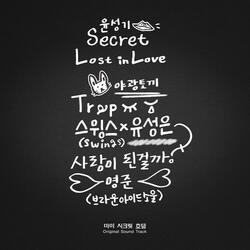 윤성기
Secret
Lost in Love
야광토끼
Trap
스윙스x유성은
(Swings)
사랑이 된걸까?
명준
(브라운아이드소울)
마이 시크릿 호텔
Original Sound Track